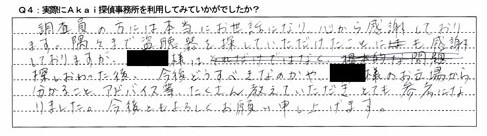 Q4：実際にAkai探偵事務所を利用してみていかがでしたか？
調査員の方には本当にお世話になり、心から感謝しており
ます。隅々まで盗聴器を探していただけたことにも感謝
しておりますが、様は
探しおわった後、今後どうすべきなのかや、様のお立場から
分かること、アドバイス等、たくさん教えていただき とても参考にな
りました。今後ともよろしくお願い申し上げます。